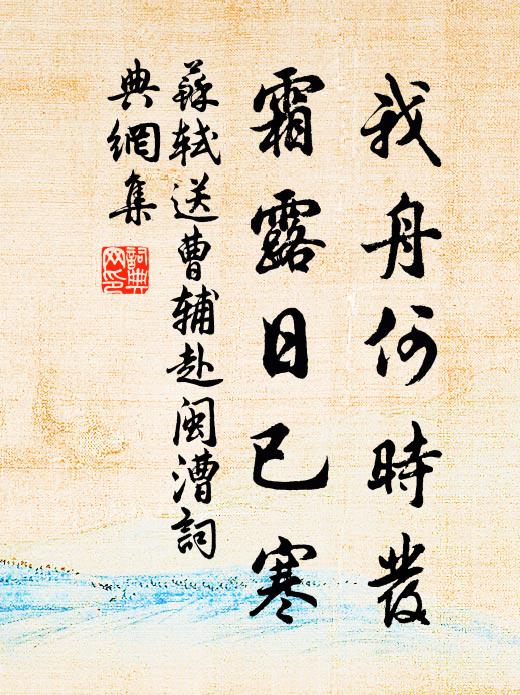 我舟何時發
霜露日已寒
蘇軾送曹輔赴閩漕詞
典網集
詞典
网印